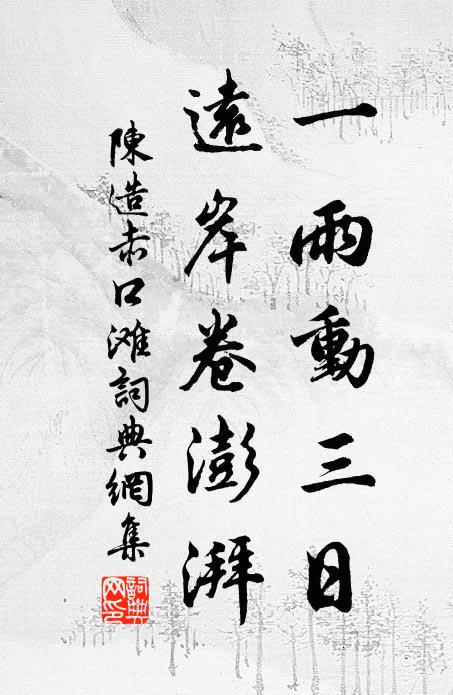 一雨動三日
遠岸卷澎湃
陳造赤口滩詞典網集